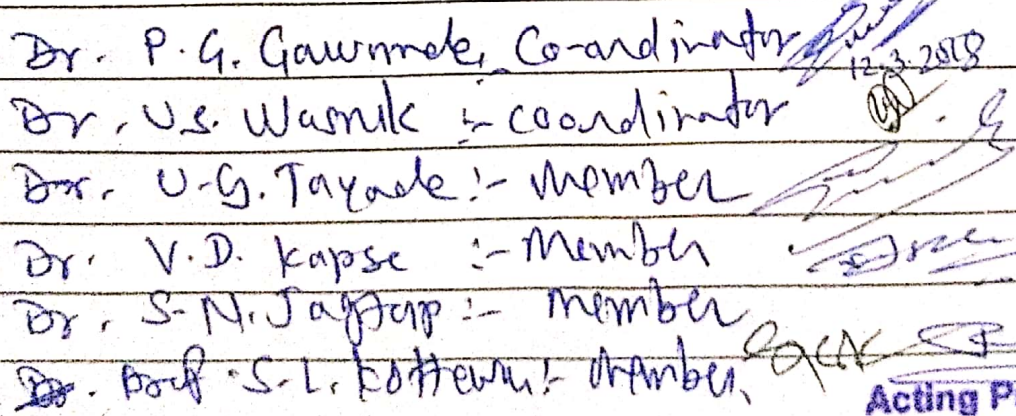 Dr. P.G. Gawande, Co-ordinator
12.3.2018
Dr. U.S. Wasnik :- coordinator
Dr. U.G. Tayade :- Member
Dr. V.D. Kapse :- Member
Dr. S.N. Jagtap :- Member
Prof. S.L. :- Member
Acting P